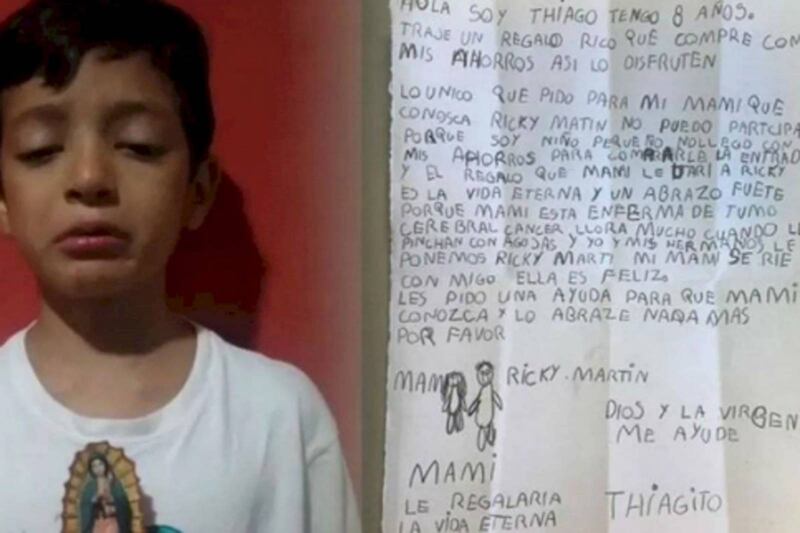 HOLA SOY THIAGO TENGO 8 AÑOS.
TRAJE UN REGALO RICO QUE COMPRE CON
MIS AHORROS ASI LO DISFRUTEN
LO UNICO QUE PIDO PARA MI MAMI QUE
CONOSCA RICKY MATIN NO PUEDO PARTCIPA
PORQUE SOY NIÑO PEQUEÑO NO LLEGO CON
MIS AHORROS PARA COMPRARLE LA ENTRAD
Y EL REGALO QUE MAMI LE DARIA RICKY
ES LA VIDA ETERNA Y UN ABRAZO FUETE
PORQUE MAMI ESTA ENFERMA DE TUMO
CEREBRAL CANCER LLORA MUCHO CUANDO LE
PINCHAN CON AGOJAS Y YO Y MIS HERMANOS LE
PONEMOS RICKY MARTI MI MAMI SE RIE
CON MIGO ELLA ES FELIZ.
LES PIDO UNA AYUDA PARA QUE MAMI
CONOZCA Y LO ABRAZE NADA MAS
POR FAVOR
MAMI RICKY.MARTIN
DIOS Y LA VIRGEN
ME AYUDE
MAMI
LE REGALARIA
LA VIDA ETERNA
THIAGITO